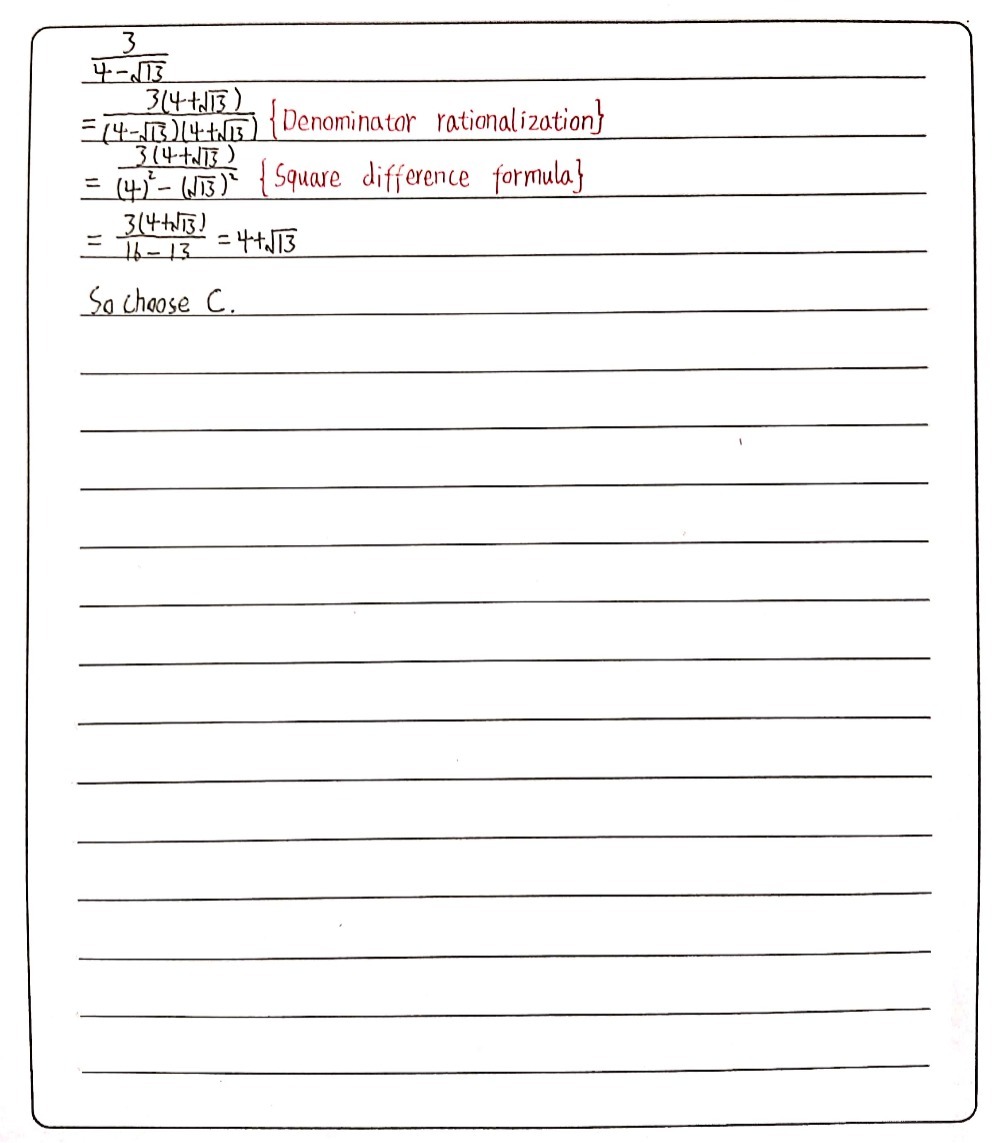 3/(4-√13)
= 3(4+√13)/(4-√13)(4+√13) {Denominator rationalization}
= 3(4+√13)/(4)²-(√13)² {Square difference formula}
= 3(4+√13)/16-13 = 4+√13
So choose C.